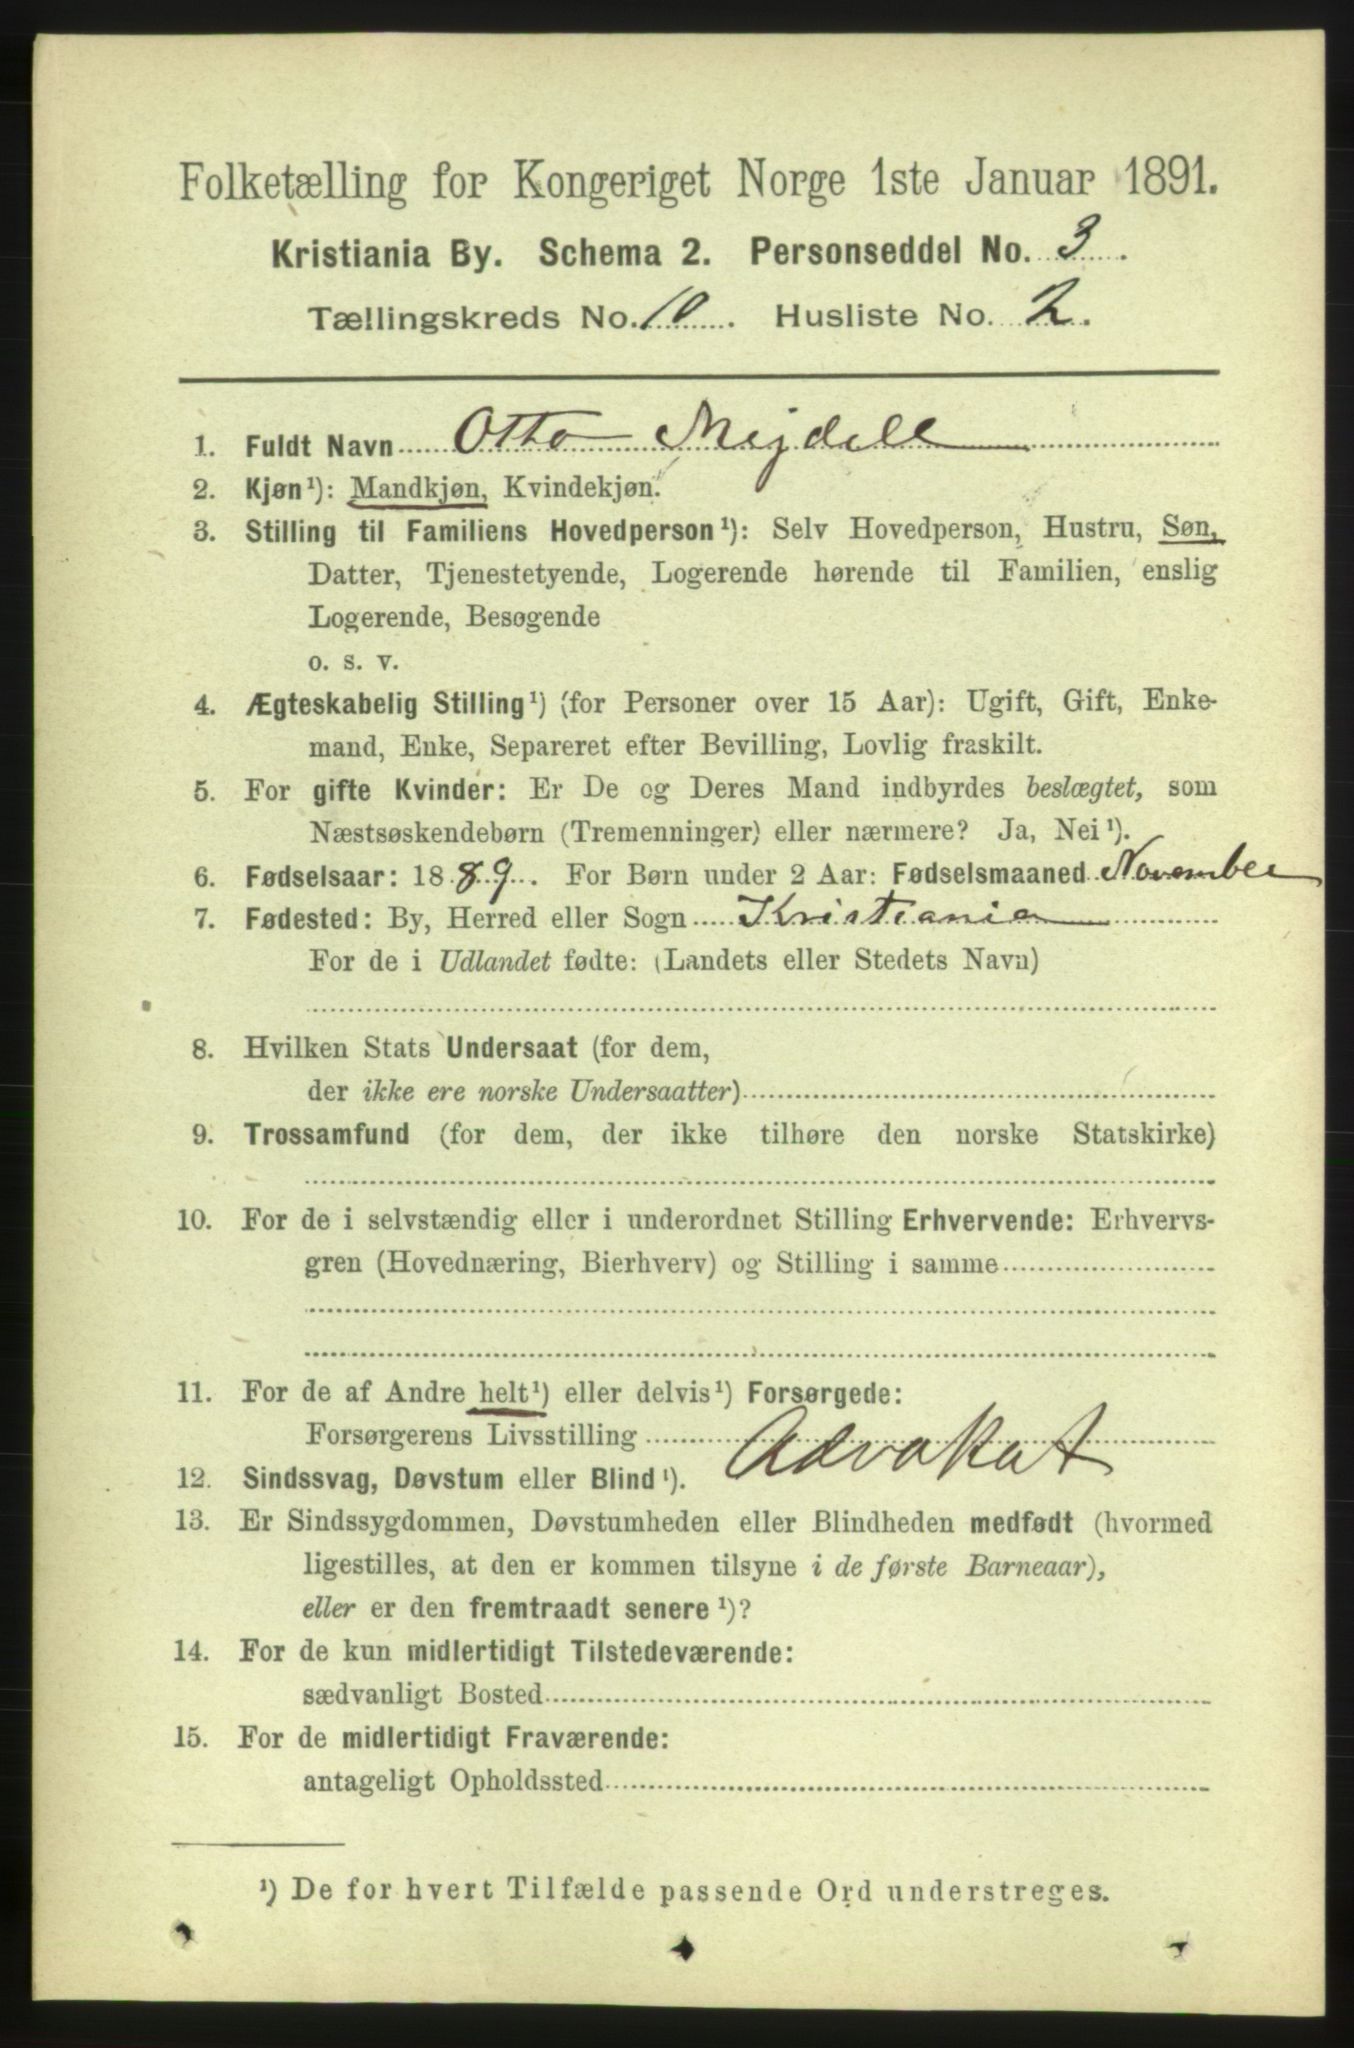 Folketælling for Kongeriget Norge 1ste Januar 1891.
Kristiania By. Schema 2. Personseddel No. 3.
Tællingskreds No. 10. Husliste No. 2.
1. Fuldt Navn Otto Mejdell
2. Kjøn¹): Mandkjøn, Kvindekjøn.
3. Stilling til Familiens Hovedperson¹): Selv Hovedperson, Hustru, Søn,
Datter, Tjenestetyende, Logerende hørende til Familien, enslig
Logerende, Besøgende
o. s. v.
4. Ægteskabelig Stilling¹) (for Personer over 15 Aar): Ugift, Gift, Enke-
mand, Enke, Separeret efter Bevilling, Lovlig fraskilt.
5. For gifte Kvinder: Er De og Deres Mand indbyrdes beslægtet, som
Næstsøskendebørn (Tremenninger) eller nærmere? Ja, Nei¹).
6. Fødselsaar: 1889. For Børn under 2 Aar: Fødselsmaaned November
7. Fødested: By, Herred eller Sogn Kristiania
For de i Udlandet fødte: (Landets eller Stedets Navn)
8. Hvilken Stats Undersaat (for dem,
der ikke ere norske Undersaatter)
9. Trossamfund (for dem, der ikke tilhøre den norske Statskirke)
10. For de i selvstændig eller i underordnet Stilling Erhvervende: Erhvervs-
gren (Hovednæring, Bierhverv) og Stilling i samme
11. For de af Andre helt¹) eller delvis¹) Forsørgede:
Forsørgerens Livsstilling Advokat
12. Sindssvag, Døvstum eller Blind¹).
13. Er Sindssygdommen, Døvstumheden eller Blindheden medfødt (hvormed
ligestilles, at den er kommen tilsyne i de første Barneaar),
eller er den fremtraadt senere¹)?
14. For de kun midlertidigt Tilstedeværende:
sædvanligt Bosted
15. For de midlertidigt Fraværende:
antageligt Opholdssted
¹) De for hvert Tilfælde passende Ord understreges.